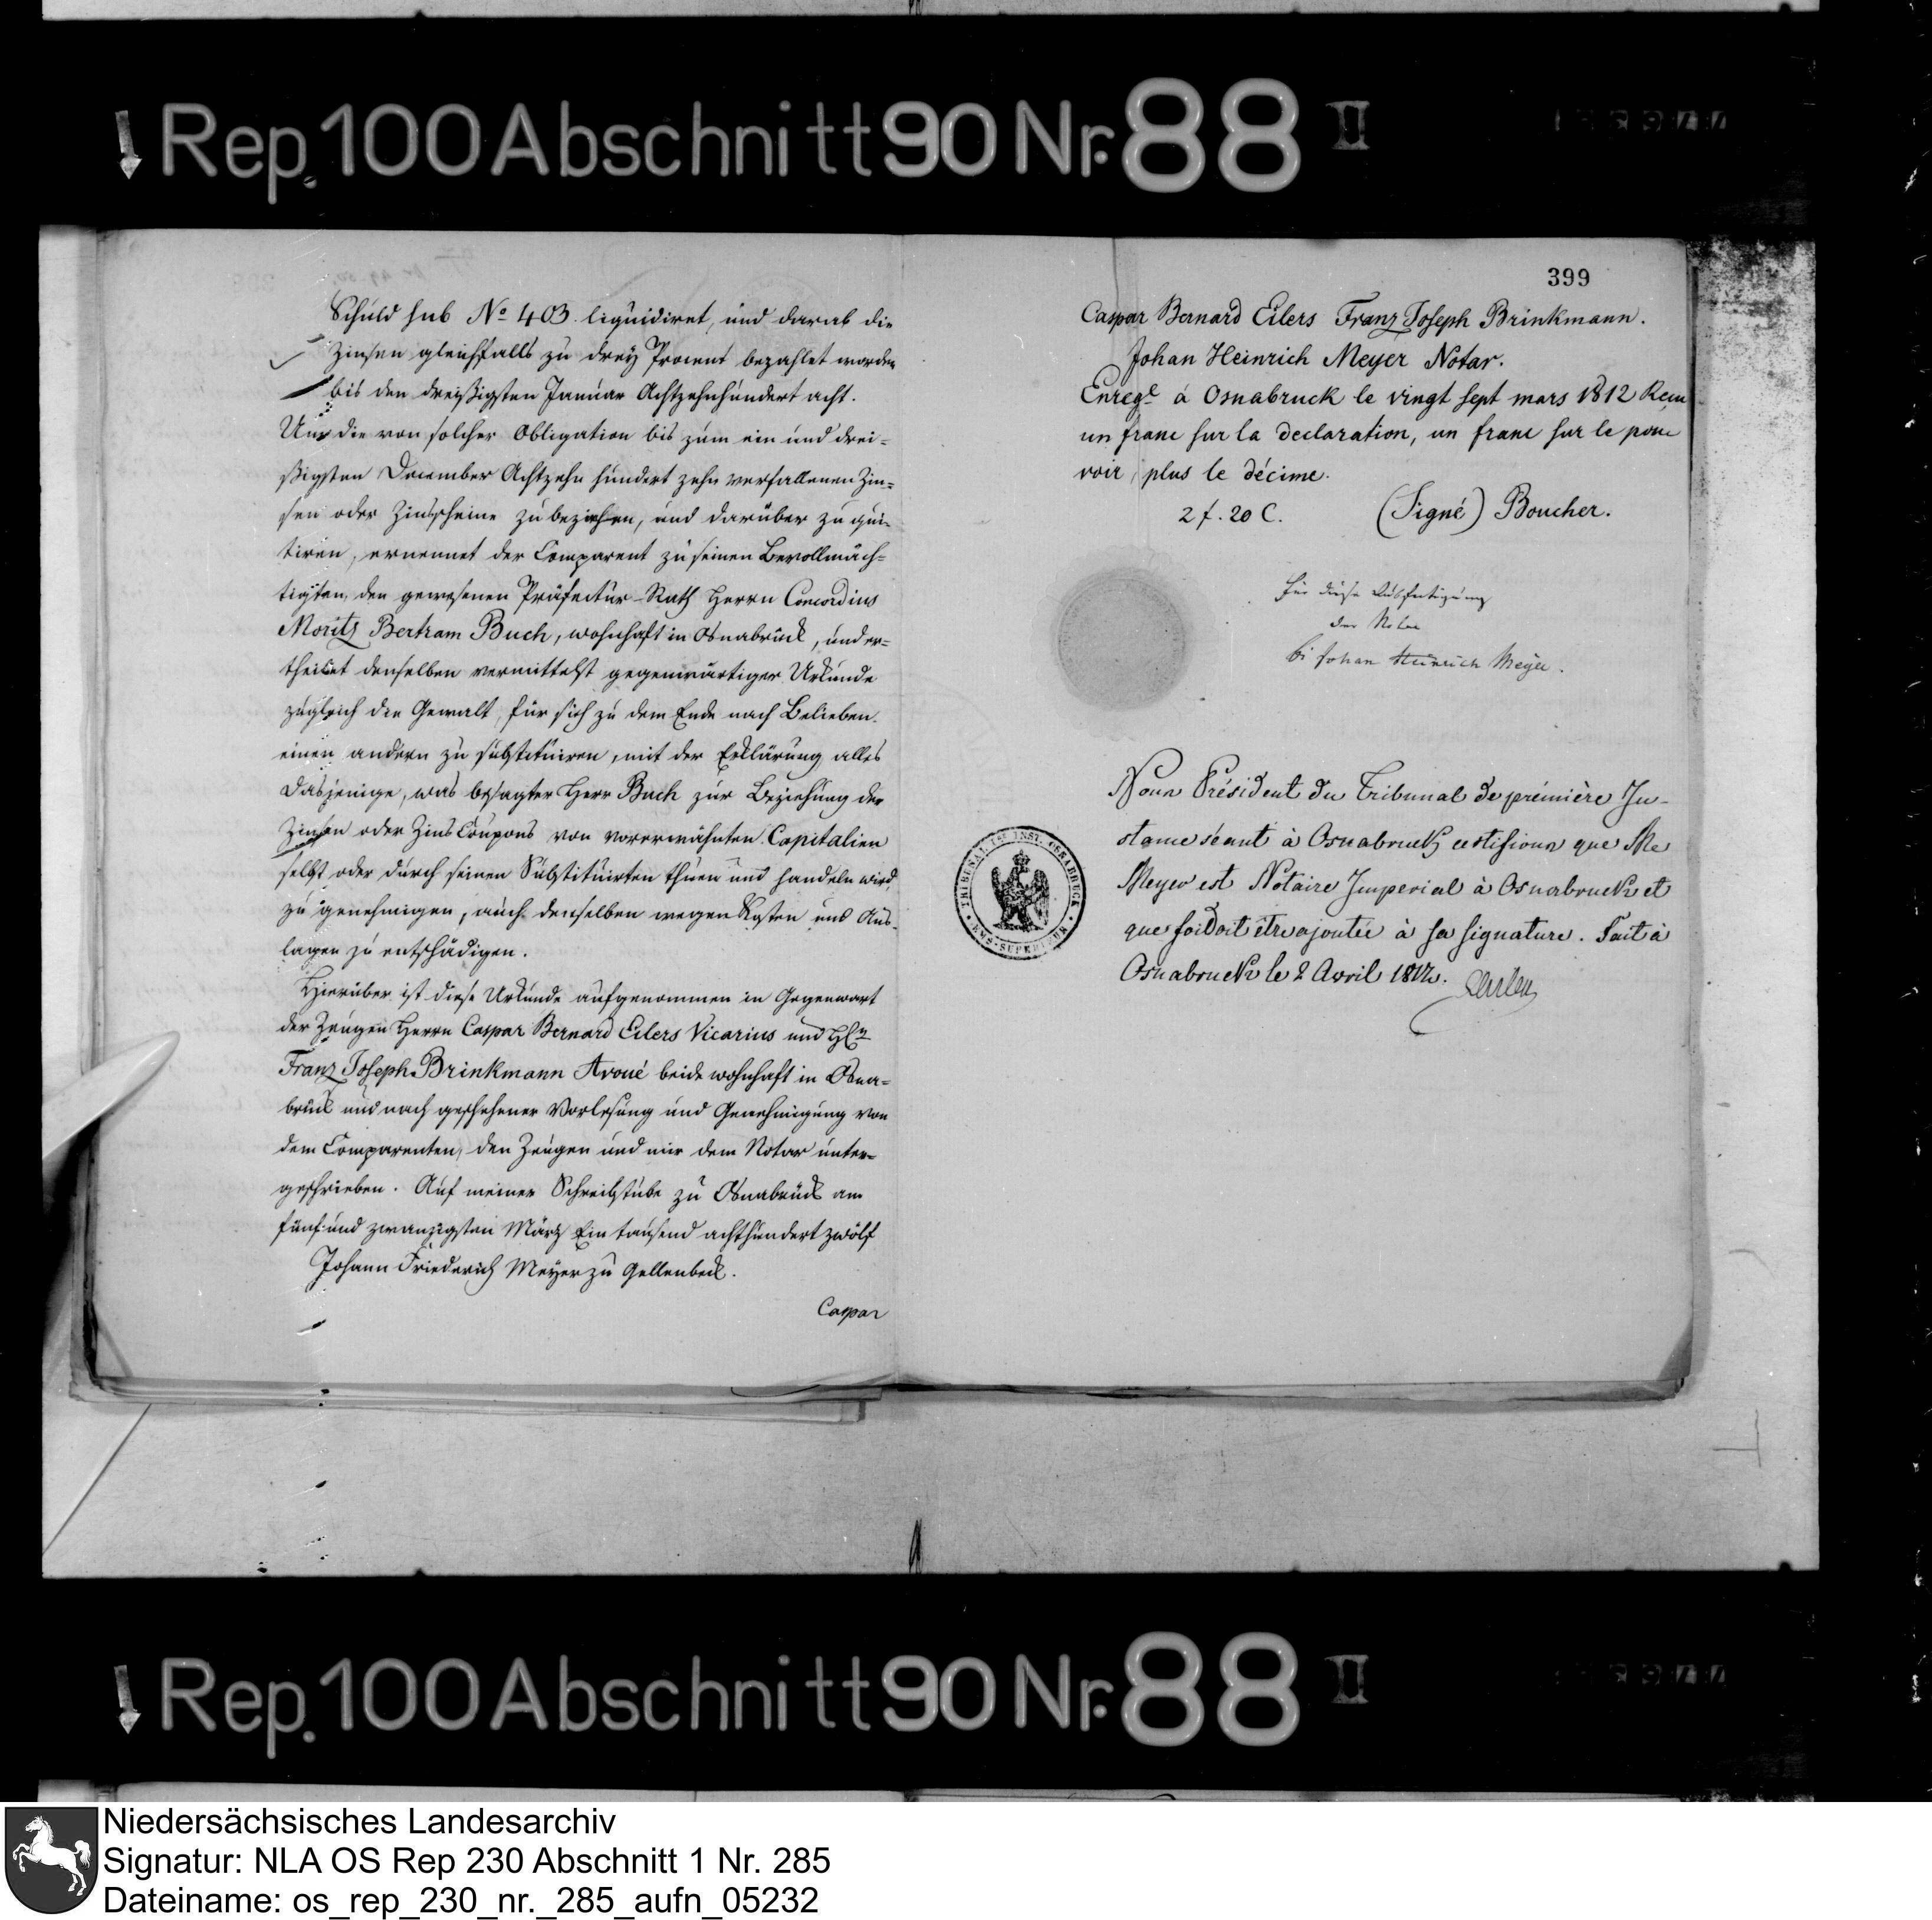 Rep. 100 Abschnitt 90 Nr. 88 II
Schuld sub No 403. liquidiret, und darab die
Zinsen gleichfalls zu drey Procent bezahlet worden
bis den dreißigsten Januar Achtzehnhundert acht.
Um die von solcher Obligation bis zum ein und drei=
ßigsten December Achtzehn hundert zehn verfallenen Zin=
sen oder Zinsscheine zu beziehen, und darüber zu qui=
tiren, ernennet der Comparent zu seinen Bevollmäch=
tigten, den gewesenen Präfectur-Rath Herrn Concordius
Moritz Bertram Buch, wohnhaft in Osnabrück, und er=
theilet denselben vermittelst gegenwärtiger Urkunde
zugleich die Gewalt, für sich zu dem Ende nach Belieben
einen andern zu substituiren, mit der Erklärung alles
dasjenige, was besagter Herr Buch zur Beziehung der
Zinsen oder Zins Coupons von vorerwähnten Capitalien
selbst oder durch seinen Substituirten thuen und handeln wird,
zu genehmigen, auch denselben wegen Kosten und Aus=
lagen zu entschädigen.
Hierüber ist diese Urkunde aufgenommen in Gegenwart
der Zeugen Herrn Caspar Bernard Eilers Vicarius und Hrn
Franz Joseph Brinkmann Avoué beide wohnhaft in Osna=
brück und nach geschehener Vorlesung und Genehmigung von
dem Comparenten, den Zeugen und mir dem Notar unter=
geschrieben. Auf meiner Schreibstube zu Osnabrück am
fünf und zwanzigsten März Ein tausend achthundert zwölf
Johann Friederich Meyer zu Gellenbeck.
Caspar
399
Caspar Bernard Eilers Franz Joseph Brinkmann.
Johan Heinrich Meyer Notar.
Enregé á Osnabruck le vingt sept mars 1812 Reçu
un franc sur la declaration, un franc sur le pou
voir, plus le décime.
2 f. 20 C. (Signé) Boucher.
Für diese Ausfertigung
der Notar
Johan Heinrich Meyer.
Nous Président du Tribunal de prémière In-
stance séant à Osnabruck certifions que Me
Meyer est Notaire Imperial à Osnabruck et
que foi doit être ajoutée à sa signature. Fait à
Osnabruck le 2 Avril 1812.
TRIBUNAL 1re INST. OSNABRUCK
EMS-SUPERIEUR
Rep. 100 Abschnitt 90 Nr. 88 II
Niedersächsisches Landesarchiv
Signatur: NLA OS Rep 230 Abschnitt 1 Nr. 285
Dateiname: os_rep_230_nr._285_aufn_05232